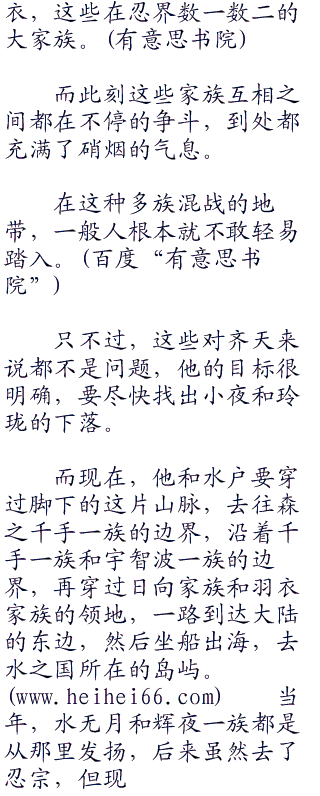 衣，这些在忍界数一数二的
大家族。(有意思书院)
而此刻这些家族互相之
间都在不停的争斗，到处都
充满了硝烟的气息。
在这种多族混战的地
带，一般人根本就不敢轻易
踏入。(百度“有意思书
院”)
只不过，这些对齐天来
说都不是问题，他的目标很
明确，要尽快找出小夜和玲
珑的下落。
而现在，他和水户要穿
过脚下的这片山脉，去往森
之千手一族的边界，沿着千
手一族和宇智波一族的边
界，再穿过日向家族和羽衣
家族的领地，一路到达大陆
的东边，然后坐船出海，去
水之国所在的岛屿。
(www.heihei66.com) 当
年，水无月和辉夜一族都是
从那里发扬，后来虽然去了
忍宗，但现